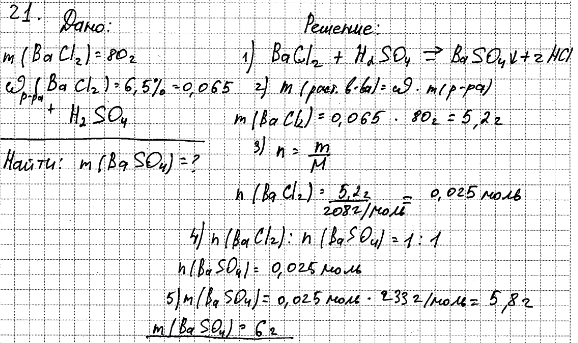 21. Дано:
m(BaCl2)=80г
ω р-ра (BaCl2)=6,5%=0,065
+ H2SO4
Найти: m(BaSO4)=?
Решение:
1) BaCl2 + H2SO4 ⇒ BaSO4↓+2HCl
2) m(раст. в-ва)=ω · m(р-ра)
m(BaCl2)=0,065 · 80г = 5,2г
3) n = m/M
n(BaCl2)= 5,2г/208г/моль = 0,025 моль
4) n(BaCl2): n(BaSO4)=1:1
n(BaSO4)= 0,025 моль
5) m(BaSO4)=0,025 моль · 233г/моль= 5,8г
m(BaSO4)= 6г